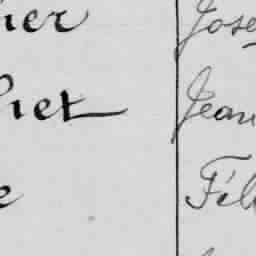 her Jose
riet Jean
e Féli